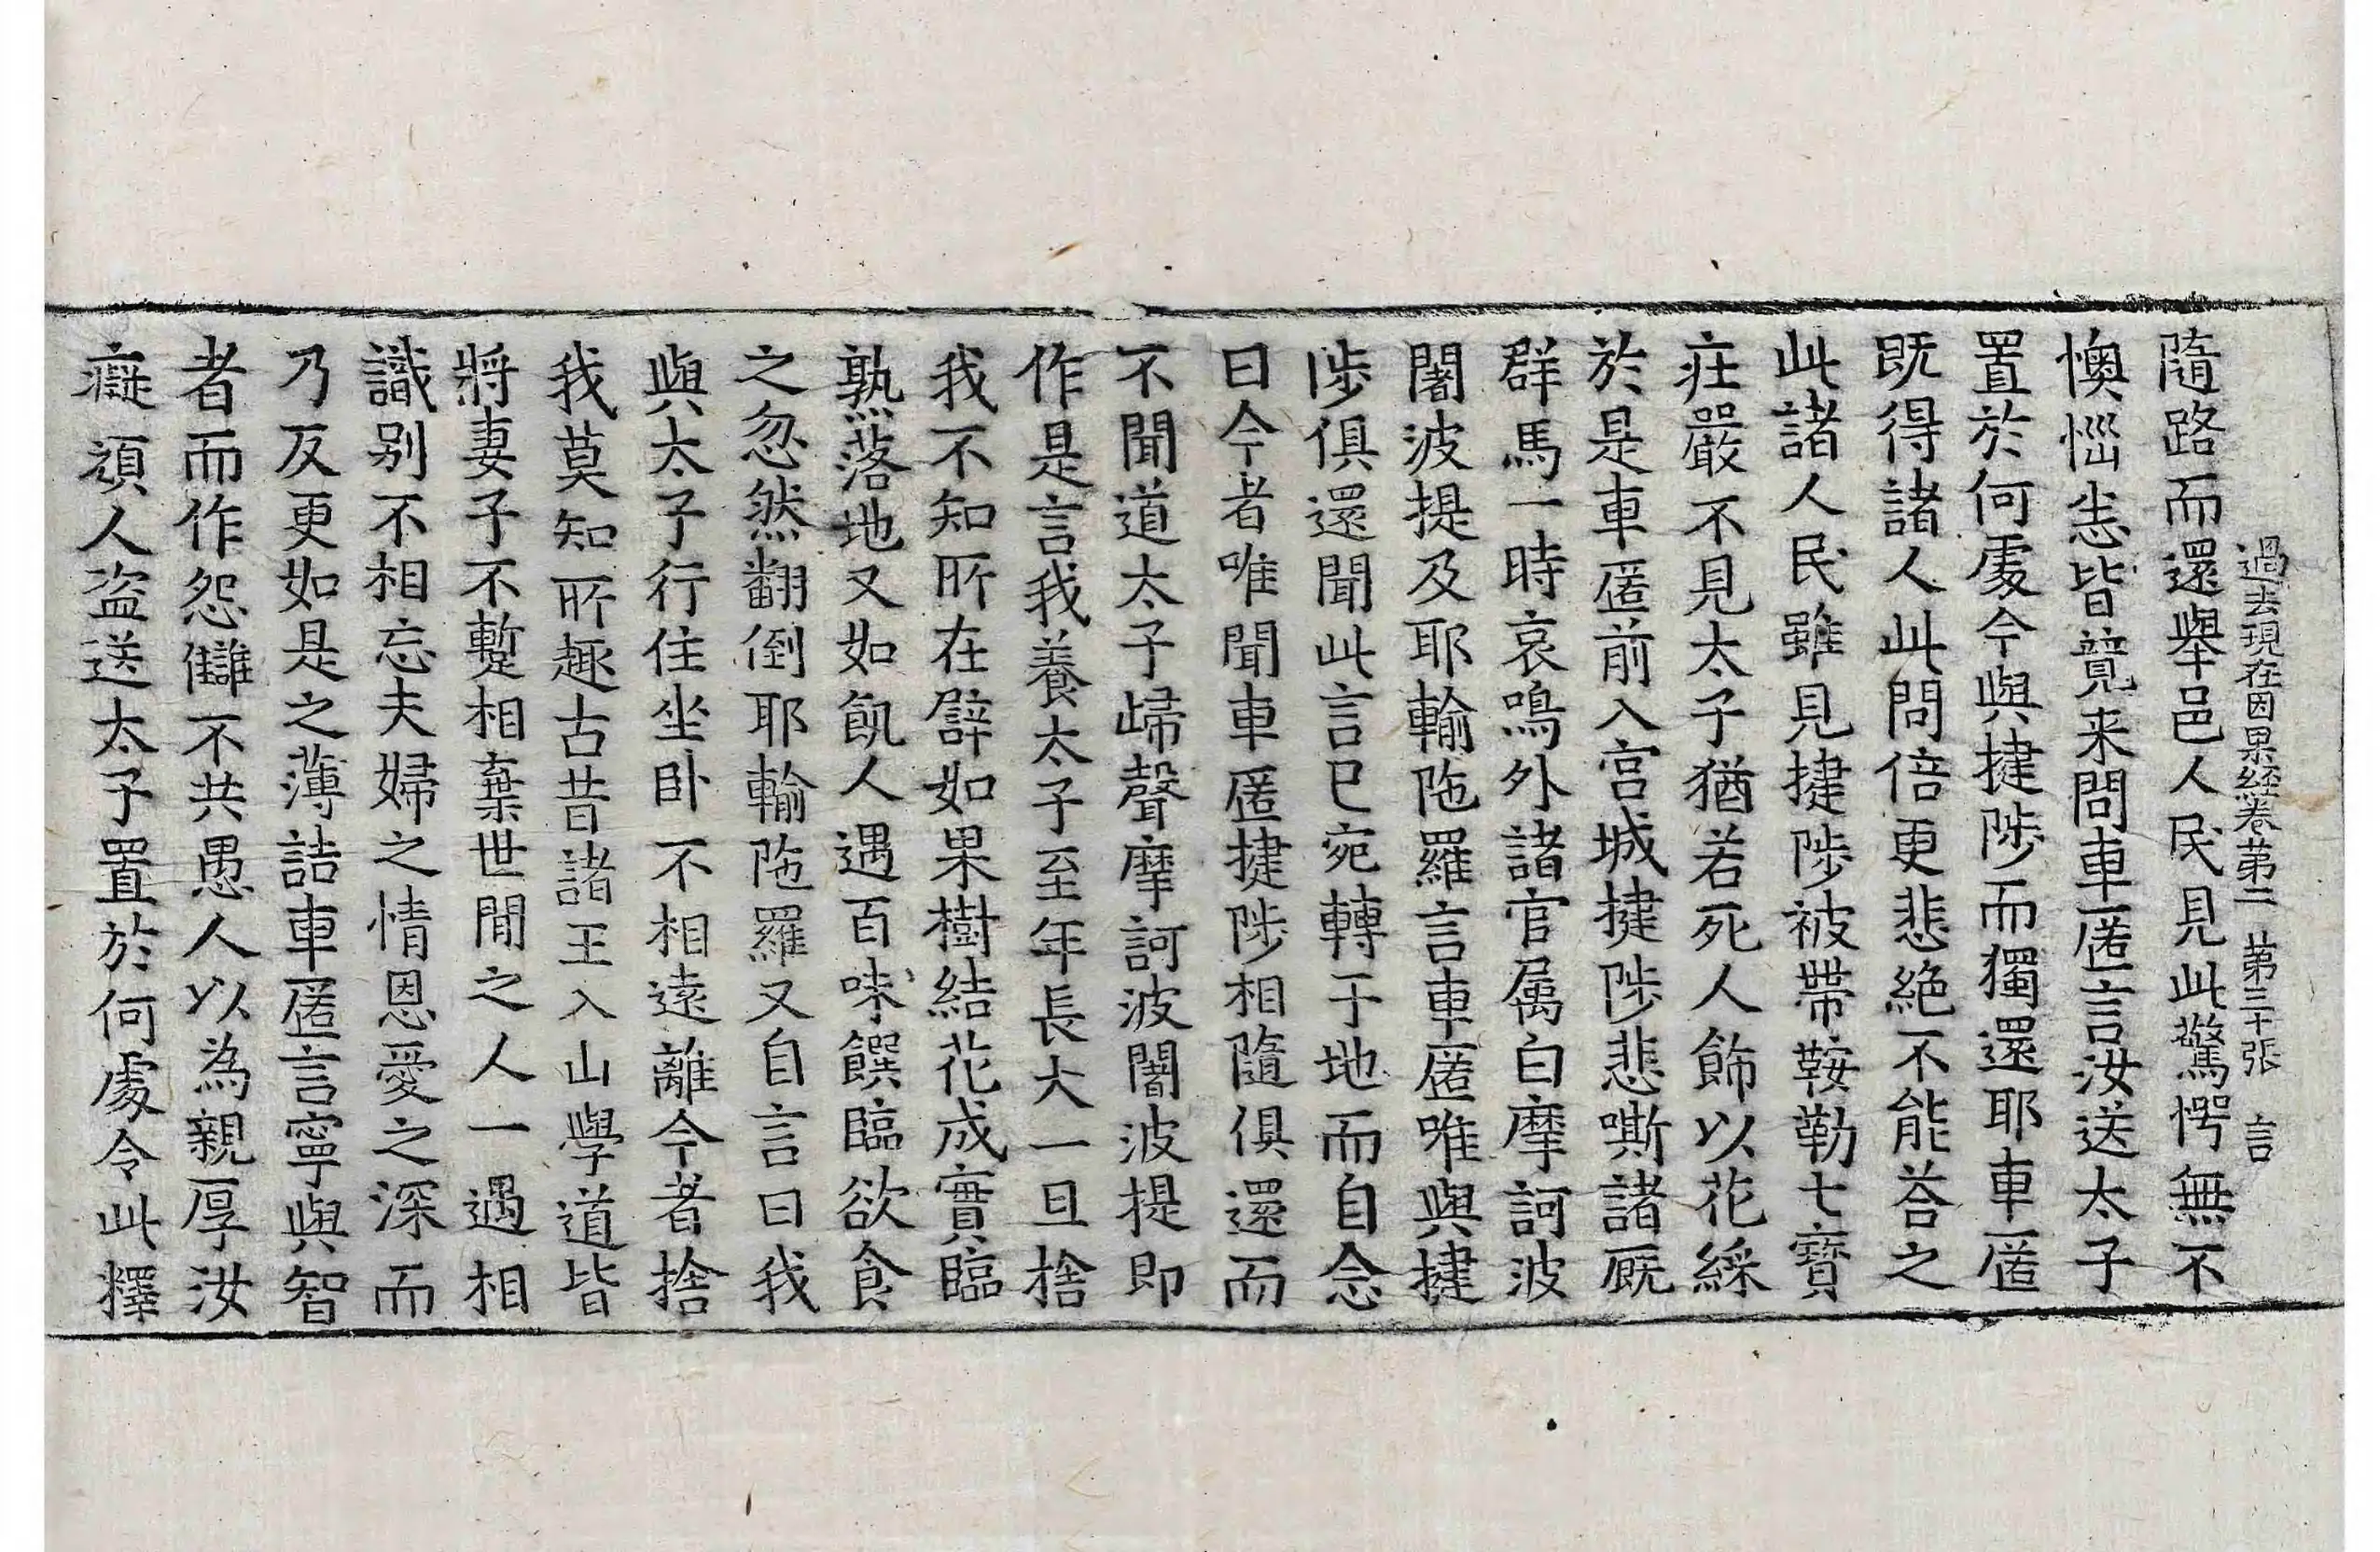 過去現在因果經卷第二 第三十張 言
隨路而還舉邑人民見此驚愕無不
懊惱恚皆竟来問車匿言汝送太子
置於何處今與揵陟而獨還耶車匿
既得諸人此問倍更悲絶不能荅之
此諸人民雖見揵陟被帶鞍勒七寶
莊嚴不見太子猶若死人飾以花綵
於是車匿前入宫城揵陟悲嘶諸厩
群馬一時哀鳴外諸官属白摩訶波
闍波提及耶輸陁羅言車匿唯與揵
陟俱還聞此言已宛轉于地而自念
曰今者唯聞車匿揵陟相隨俱還而
不聞道太子歸聲摩訶波闍波提即
作是言我養太子至年長大一旦捨
我不知所在譬如果樹結花成實臨
熟落地又如飢人遇百味饌臨欲食
之忽然翻倒耶輸陁羅又自言曰我
與太子行住坐卧不相遠離今者捨
我莫知所趣古昔諸王入山學道皆
將妻子不蹔相棄世間之人一遇相
識别不相忘夫婦之情恩愛之深而
乃反更如是之薄詰車匿言寧與智
者而作怨讎不共愚人以為親厚汝
癡頑人盗送太子置於何處令此釋